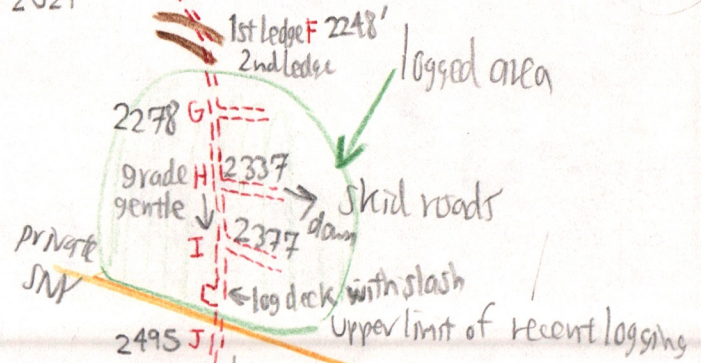 2021
1st Ledge F 2248'
2nd ledge
logged area
2278 G
grade H 2337
gentle
skid roads
down
I 2377
private
SNF
log deck with slash
upper limit of recent logging
2495 J